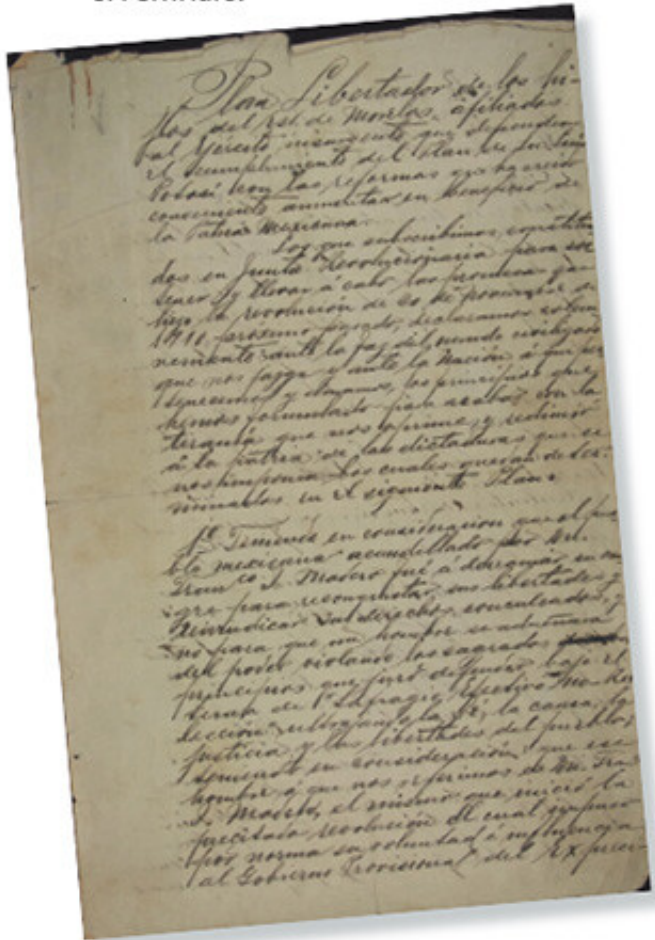 Plan Libertador de los hi-
jos del Est. de Morelos, afiliados
al Ejército insurgente que defienden
el cumplimiento del Plan de San Luis
Potosí con las reformas que ha creido
conveniente aumentar en beneficio de
la Patria Mexicana.
Los que subscribimos constitui-
dos en Junta Revolucionaria para sos-
tener y llevar á cabo las promesas que
hizo la revolución de 20 de noviembre de
1910, próximo pasado, declaramos solem-
nemente ante la faz del mundo civilizado
que nos juzga y ante la Nación á que per-
tenecemos y amamos, los principios que
hemos formulado para acabar con la
tiranía que nos oprime y redimir
á la patria de las dictaduras que se
nos imponen los cuales quedan deter-
minados en el siguiente Plan:
1º. Teniendo en consideracion que el pue-
blo mexicano acaudillado por Dn.
Franco. I. Madero fué á derramar su san-
gre para reconquistar sus libertades y
reivindicar sus derechos conculcados, y
no para que un hombre se adueñara
del poder violando los sagrados
principios que juró defender bajo el
lema de "Sufragio Efectivo" "No Re-
lección" ultrajando la fé, la causa, la
justicia y las libertades del pueblo;
teniendo en consideración: que ese
hombre á que nos referimos es Dn. Fran
I. Madero, el mismo que inició la
precitada revolución el cual impuso
por norma su voluntad é influencia
al Gobierno Provisional del Ex presi-